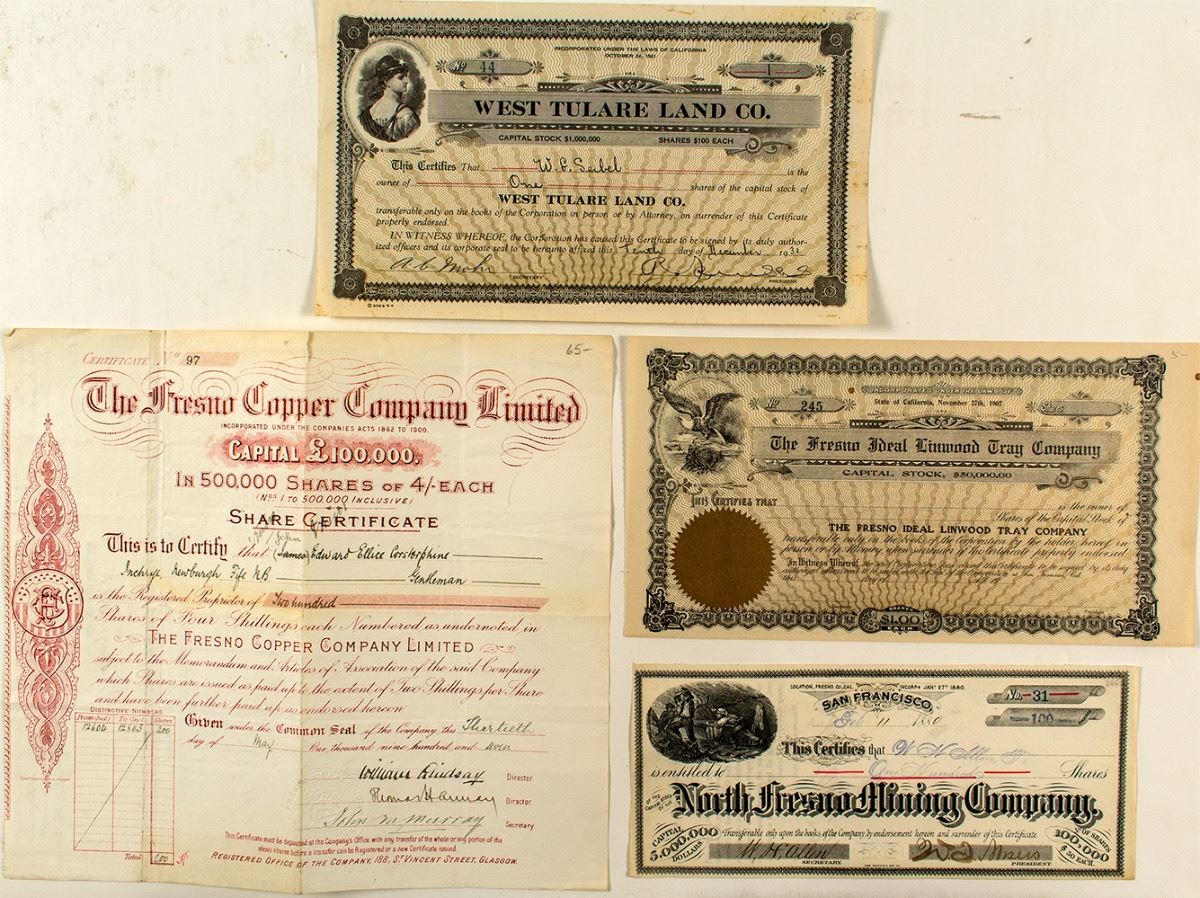 65-
INCORPORATED UNDER THE LAWS OF CALIFORNIA
OCTOBER 24, 1921
No 44
1
WEST TULARE LAND CO.
CAPITAL STOCK $1,000,000 SHARES $100 EACH
This Certifies That W. E. Seibel is the
owner of One shares of the capital stock of
WEST TULARE LAND CO.
transferable only on the books of the Corporation in person or by Attorney, on surrender of this Certificate
properly endorsed.
IN WITNESS WHEREOF, the Corporation has caused this Certificate to be signed by its duly author-
ized officers and its corporate seal to be hereunto affixed this Tenth day of December 1931
SECRETARY
PRESIDENT
CERTIFICATE No 97
65-
The Fresno Copper Company Limited
INCORPORATED UNDER THE COMPANIES ACTS 1862 TO 1900.
CAPITAL £100,000.
IN 500,000 SHARES OF 4/- EACH
(Nos. 1 TO 500,000 INCLUSIVE)
SHARE CERTIFICATE
John
This is to Certify that (James) Edward Ellice Corstorphine
Inchrye, Newburgh Fife NB Gentleman
is the Registered Proprietor of Two hundred
Shares of Four Shillings each Numbered as undernoted in
THE FRESNO COPPER COMPANY LIMITED
subject to the Memorandum and Articles of Association of the said Company
which Shares are issued as paid up to the extent of Two Shillings per Share
and have been further paid up as endorsed hereon.
DISTINCTIVE NUMBERS
From (Incl.) To (Incl.) Shares
12604 12803 200
Given under the Common Seal of the Company this Thirtieth
day of May One thousand nine hundred and seven
William Lindsay Director.
Thomas Hannay Director.
John M Murray Secretary
This Certificate must be deposited at the Company's Office with any transfer of the whole or any portion of the
above shares before a transfer can be Registered or a new Certificate issued.
Total 200
REGISTERED OFFICE OF THE COMPANY, 188, ST VINCENT STREET, GLASGOW.
5-
INCORPORATED UNDER THE LAWS OF
State of California, November 27th, 1907
No 245
Shares
The Fresno Ideal Linwood Tray Company
CAPITAL STOCK, $50,000.00
THIS CERTIFIES THAT
is the owner of
Shares of the Capital Stock of
THE FRESNO IDEAL LINWOOD TRAY COMPANY
transferable only on the books of the Corporation by the holder hereof in
person or by Attorney upon surrender of this Certificate properly endorsed.
In Witness Whereof, the said Corporation has caused this Certificate to be signed by its duly
this day of
SHARES
$1.00
EACH
LOCATION, FRESNO CO. CAL. INCORP'D JANY 27TH 1880.
No. 31
SAN FRANCISCO,
Feb 11 1880
100
This Certifies that W. H. Allen,
is entitled to One Hundred Shares
OF THE CAPITAL STOCK OF THE
North Fresno Mining Company,
CAPITAL 5,000,000 DOLLARS
Transferable only upon the books of the Company by endorsement hereon and surrender of this Certificate.
No OF SHARES 100,000 $50 EACH
W. H. Allen
SECRETARY
PRESIDENT